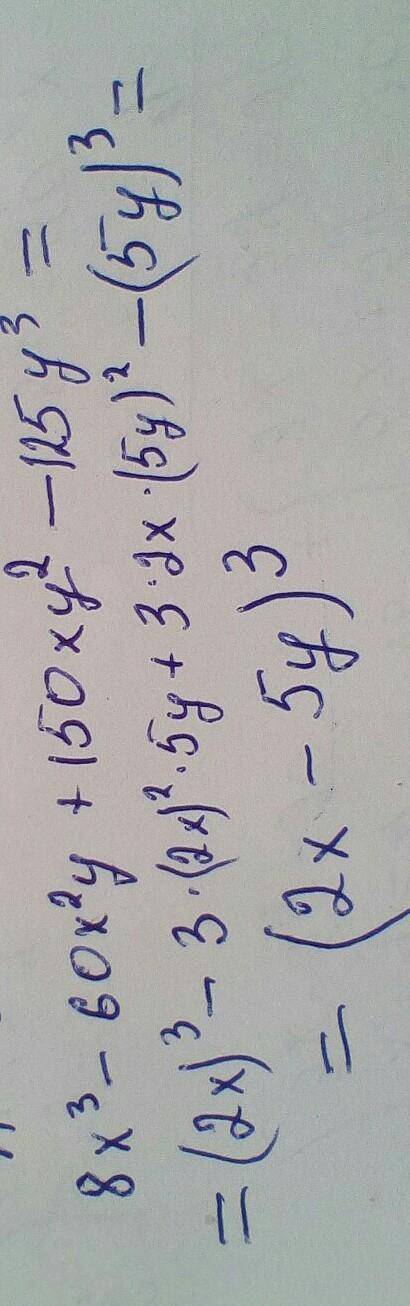 8x³ - 60x²y + 150xy² - 125y³ =
= (2x)³ - 3·(2x)²·5y + 3·2x·(5y)² - (5y)³ =
= (2x - 5y)³